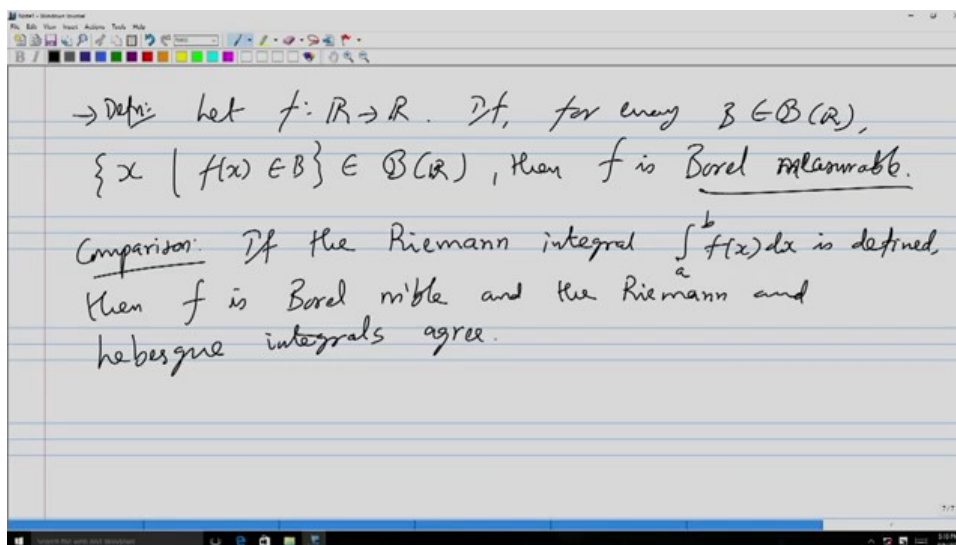 Note1 - Windows Journal
File Edit View Insert Actions Tools Help
B I
→ Defn: Let f: ℝ → ℝ. If, for every B ∈ 𝓑(ℝ),
{x | f(x) ∈ B} ∈ 𝓑(ℝ), then f is Borel measurable.
Comparison: If the Riemann integral ∫_a^b f(x)dx is defined,
then f is Borel m'ble and the Riemann and
Lebesgue integrals agree.
7/7